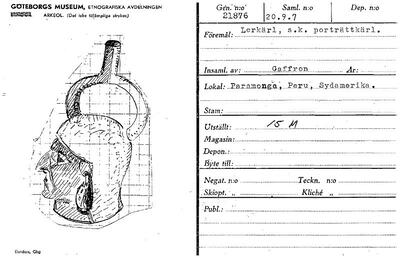 GÖTEBORGS MUSEUM, ETNOGRAFISKA AVDELNINGEN
ARKEOL. (Det icke tillämpliga strykes)
Elanders, Gbg
Gen. n:o Saml. n:o Dep. n:o
21876 20.9.7
Föremål: Lerkärl, s.k. porträttkärl.
Insaml. av: Gaffron År:
Lokal: Paramonga, Peru, Sydamerika.
Stam:
Utställt: 15 M
Magasin:
Depon.:
Byte till:
Negat. n:o Teckn. n:o
Skiopt. „ Kliché „
Publ.: